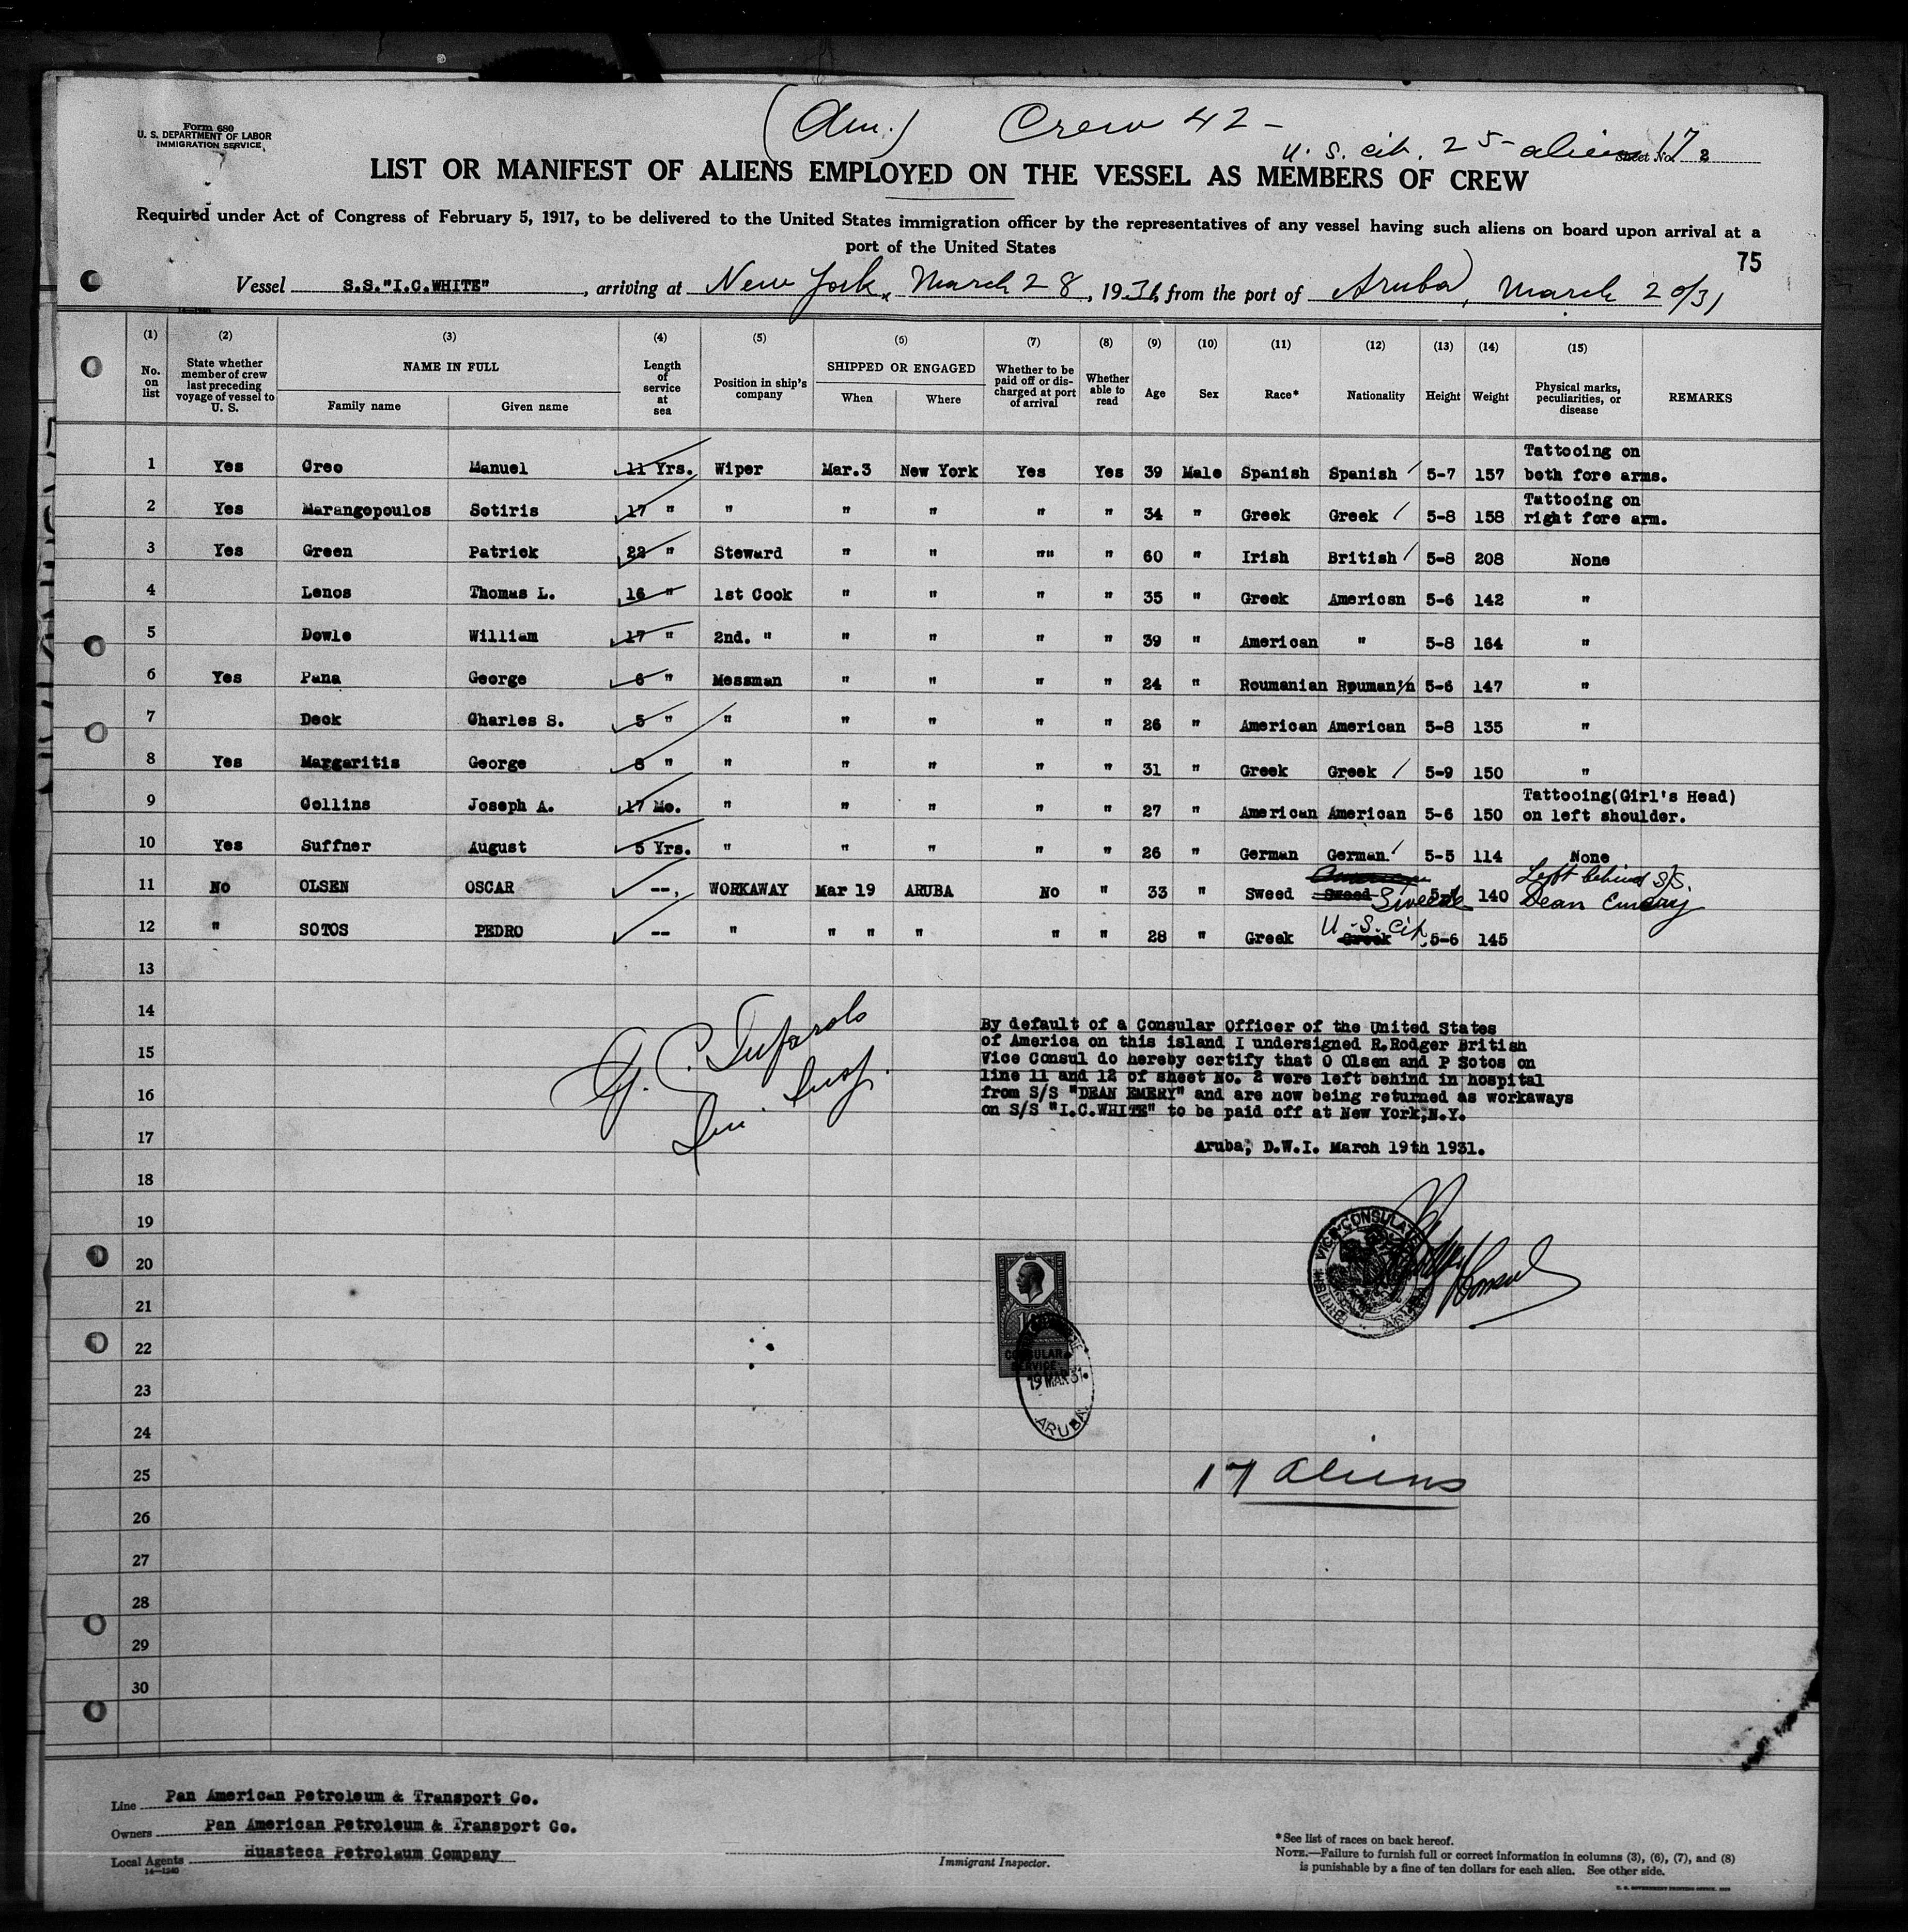 (Am.) Crew 42 -
U. S. cit. 25 - aliens 17
Form 680
U. S. DEPARTMENT OF LABOR
IMMIGRATION SERVICE
Sheet No. 2
LIST OR MANIFEST OF ALIENS EMPLOYED ON THE VESSEL AS MEMBERS OF CREW
Required under Act of Congress of February 5, 1917, to be delivered to the United States immigration officer by the representatives of any vessel having such aliens on board upon arrival at a
port of the United States
75
Vessel S.S."I.C.WHITE", arriving at New York, March 28, 1931, from the port of Aruba, March 20/31
(1) (2) (3) (4) (5) (6) (7) (8) (9) (10) (11) (12) (13) (14) (15)
No. on list State whether member of crew last preceding voyage of vessel to U. S. NAME IN FULL Length of service at sea Position in ship's company SHIPPED OR ENGAGED Whether to be paid off or discharged at port of arrival Whether able to read Age Sex Race* Nationality Height Weight Physical marks, peculiarities, or disease REMARKS
Family name Given name When Where
1 Yes Creo Manuel 11 Yrs. Wiper Mar.3 New York Yes Yes 39 Male Spanish Spanish 5-7 157 Tattooing on both fore arms.
2 Yes Marangopoulos Sotiris 17 " " " " " " 34 " Greek Greek 5-8 158 Tattooing on right fore arm.
3 Yes Green Patrick 22 " Steward " " "" " 60 " Irish British 5-8 208 None
4 Lenos Thomas L. 16 " 1st Cook " " " " 35 " Greek American 5-6 142 "
5 Dowle William 17 " 2nd. " " " " " 39 " American " 5-8 164 "
6 Yes Pana George 6 " Messman " " " " 24 " Roumanian Rouman'n 5-6 147 "
7 Deck Charles S. 5 " " " " " " 26 " American American 5-8 135 "
8 Yes Margaritis George 8 " " " " " " 31 " Greek Greek 5-9 150 "
9 Collins Joseph A. 17 Mo. " " " " " 27 " American American 5-6 150 Tattooing(Girl's Head) on left shoulder.
10 Yes Suffner August 5 Yrs. " " " " " 26 " German German 5-5 114 None
11 No OLSEN OSCAR --, WORKAWAY Mar 19 ARUBA No " 33 " Sweed Sweed Sweede 140 Left behind S/S. Dean Emery
12 " SOTOS PEDRO -- " " " " " " 28 " Greek Greek U.S. cit. 5-6 145
13
14
15
16
17
18
19
20
21
22
23
24
25
26
27
28
29
30
Imm. Insp.
By default of a Consular Officer of the United States
of America on this island I undersigned R.Rodger British
Vice Consul do hereby certify that O Olsen and P Sotos on
line 11 and 12 of sheet No. 2 were left behind in hospital
from S/S "DEAN EMERY" and are now being returned as workaways
on S/S "I.C.WHITE" to be paid off at New York,N.Y.
Aruba, D.W.I. March 19th 1931.
BRITISH VICE-CONSULATE
ARUBA
CONSULAR
SERVICE
19 MAR 31
ARUBA
17 aliens
Line Pan American Petroleum & Transport Co.
Owners Pan American Petroleum & Transport Co.
Local Agents Huasteca Petroleum Company
14—1240
Immigrant Inspector.
*See list of races on back hereof.
NOTE.—Failure to furnish full or correct information in columns (3), (6), (7), and (8)
is punishable by a fine of ten dollars for each alien. See other side.